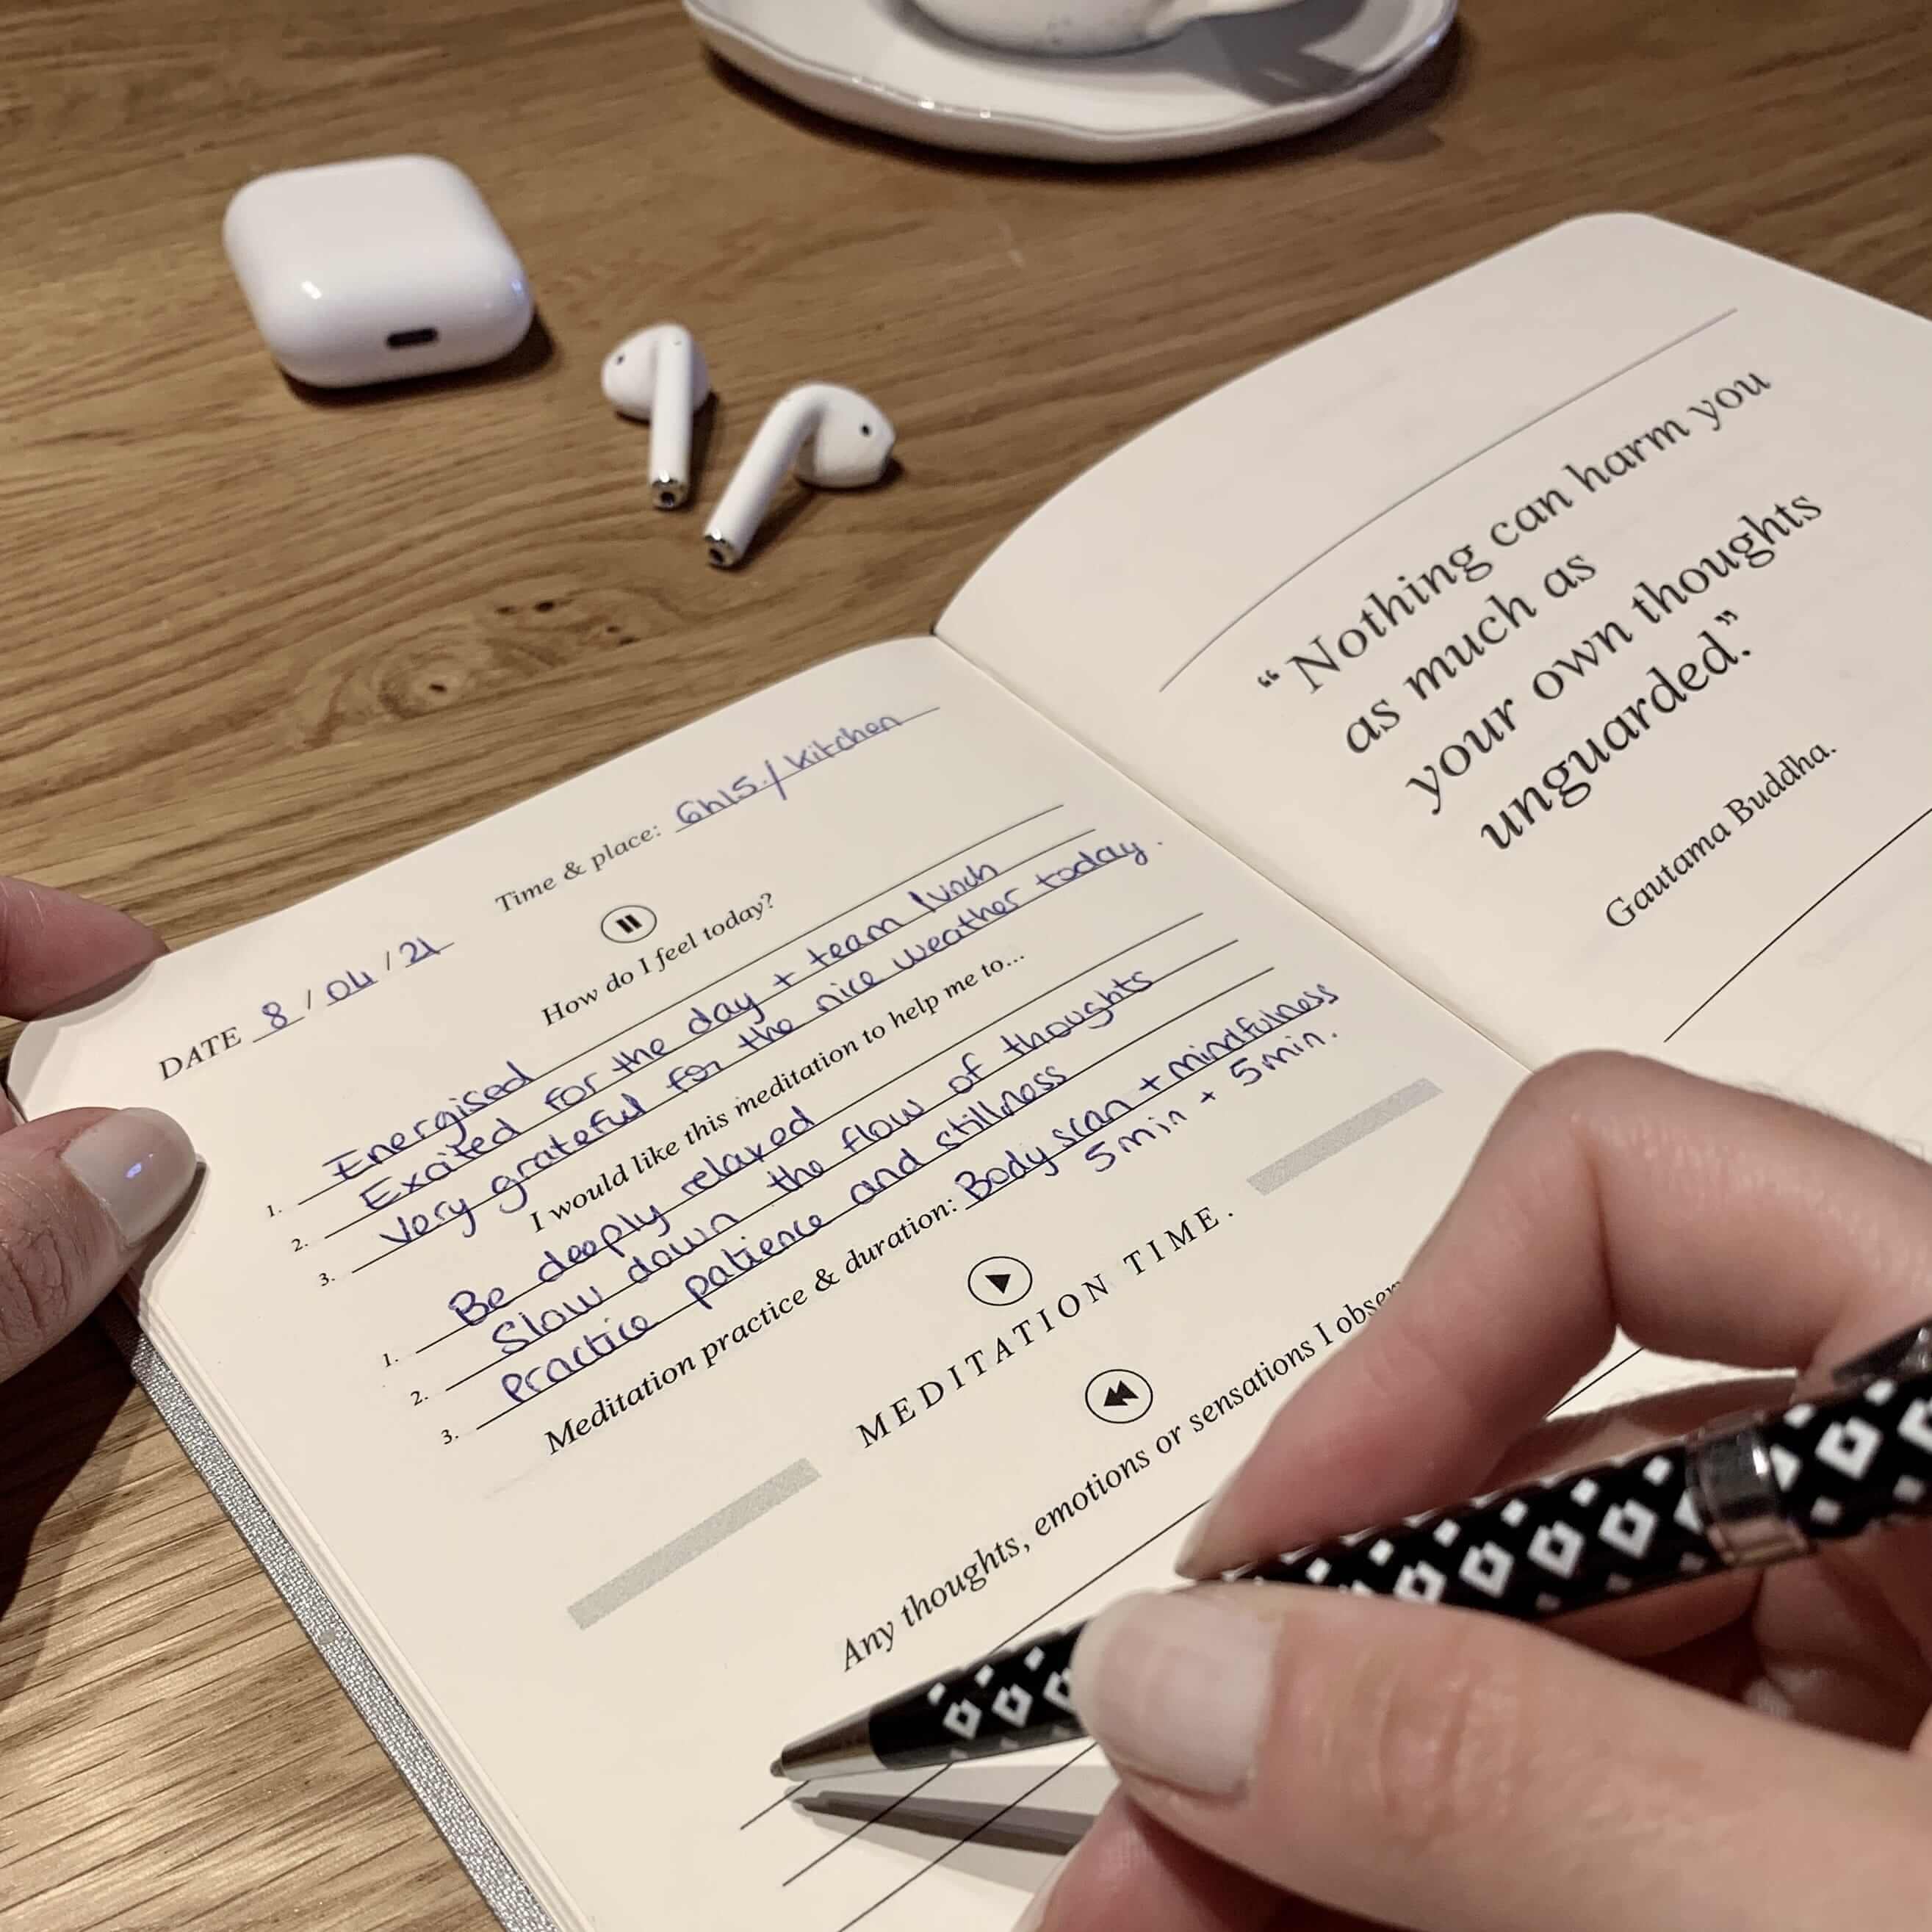 DATE 8 / 04 / 21
Time & place: 6h15 / kitchen
How do I feel today?
1. Energised
2. Excited for the day + team lunch
3. Very grateful for the nice weather today.
I would like this meditation to help me to...
1. Be deeply relaxed
2. Slow down the flow of thoughts
3. Practice patience and stillness
Meditation practice & duration: Body scan + mindfulness
5min + 5min.
MEDITATION TIME.
Any thoughts, emotions or sensations I
“Nothing can harm you
as much as
your own thoughts
unguarded.”
Gautama Buddha.